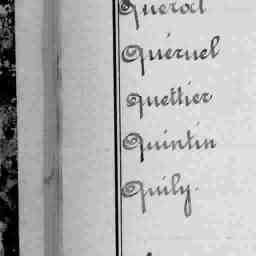 Quérod
Quéruel
Quettier
Quintin
Quily.